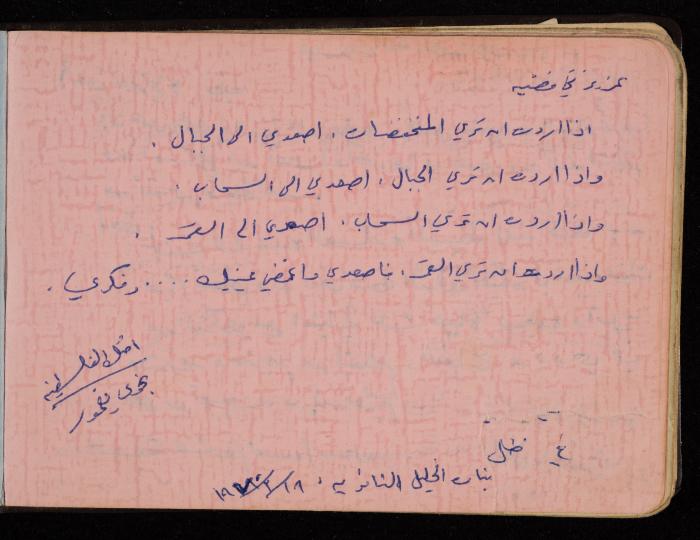 عزيزتي فضيه
اذا اردت ان تري المنخفضات، اصعدي الى الجبال.
واذا اردت ان تري الجبال، اصعدي الى السحاب.
واذا اردت ان تري السحاب، اصعدي الى القمر.
واذا اردت ان تري القمر، فاصعدي واغمضي عينيك .... وفكري.
اختك الفلسطينية
في ظل
بنات الخليل الثانوية،